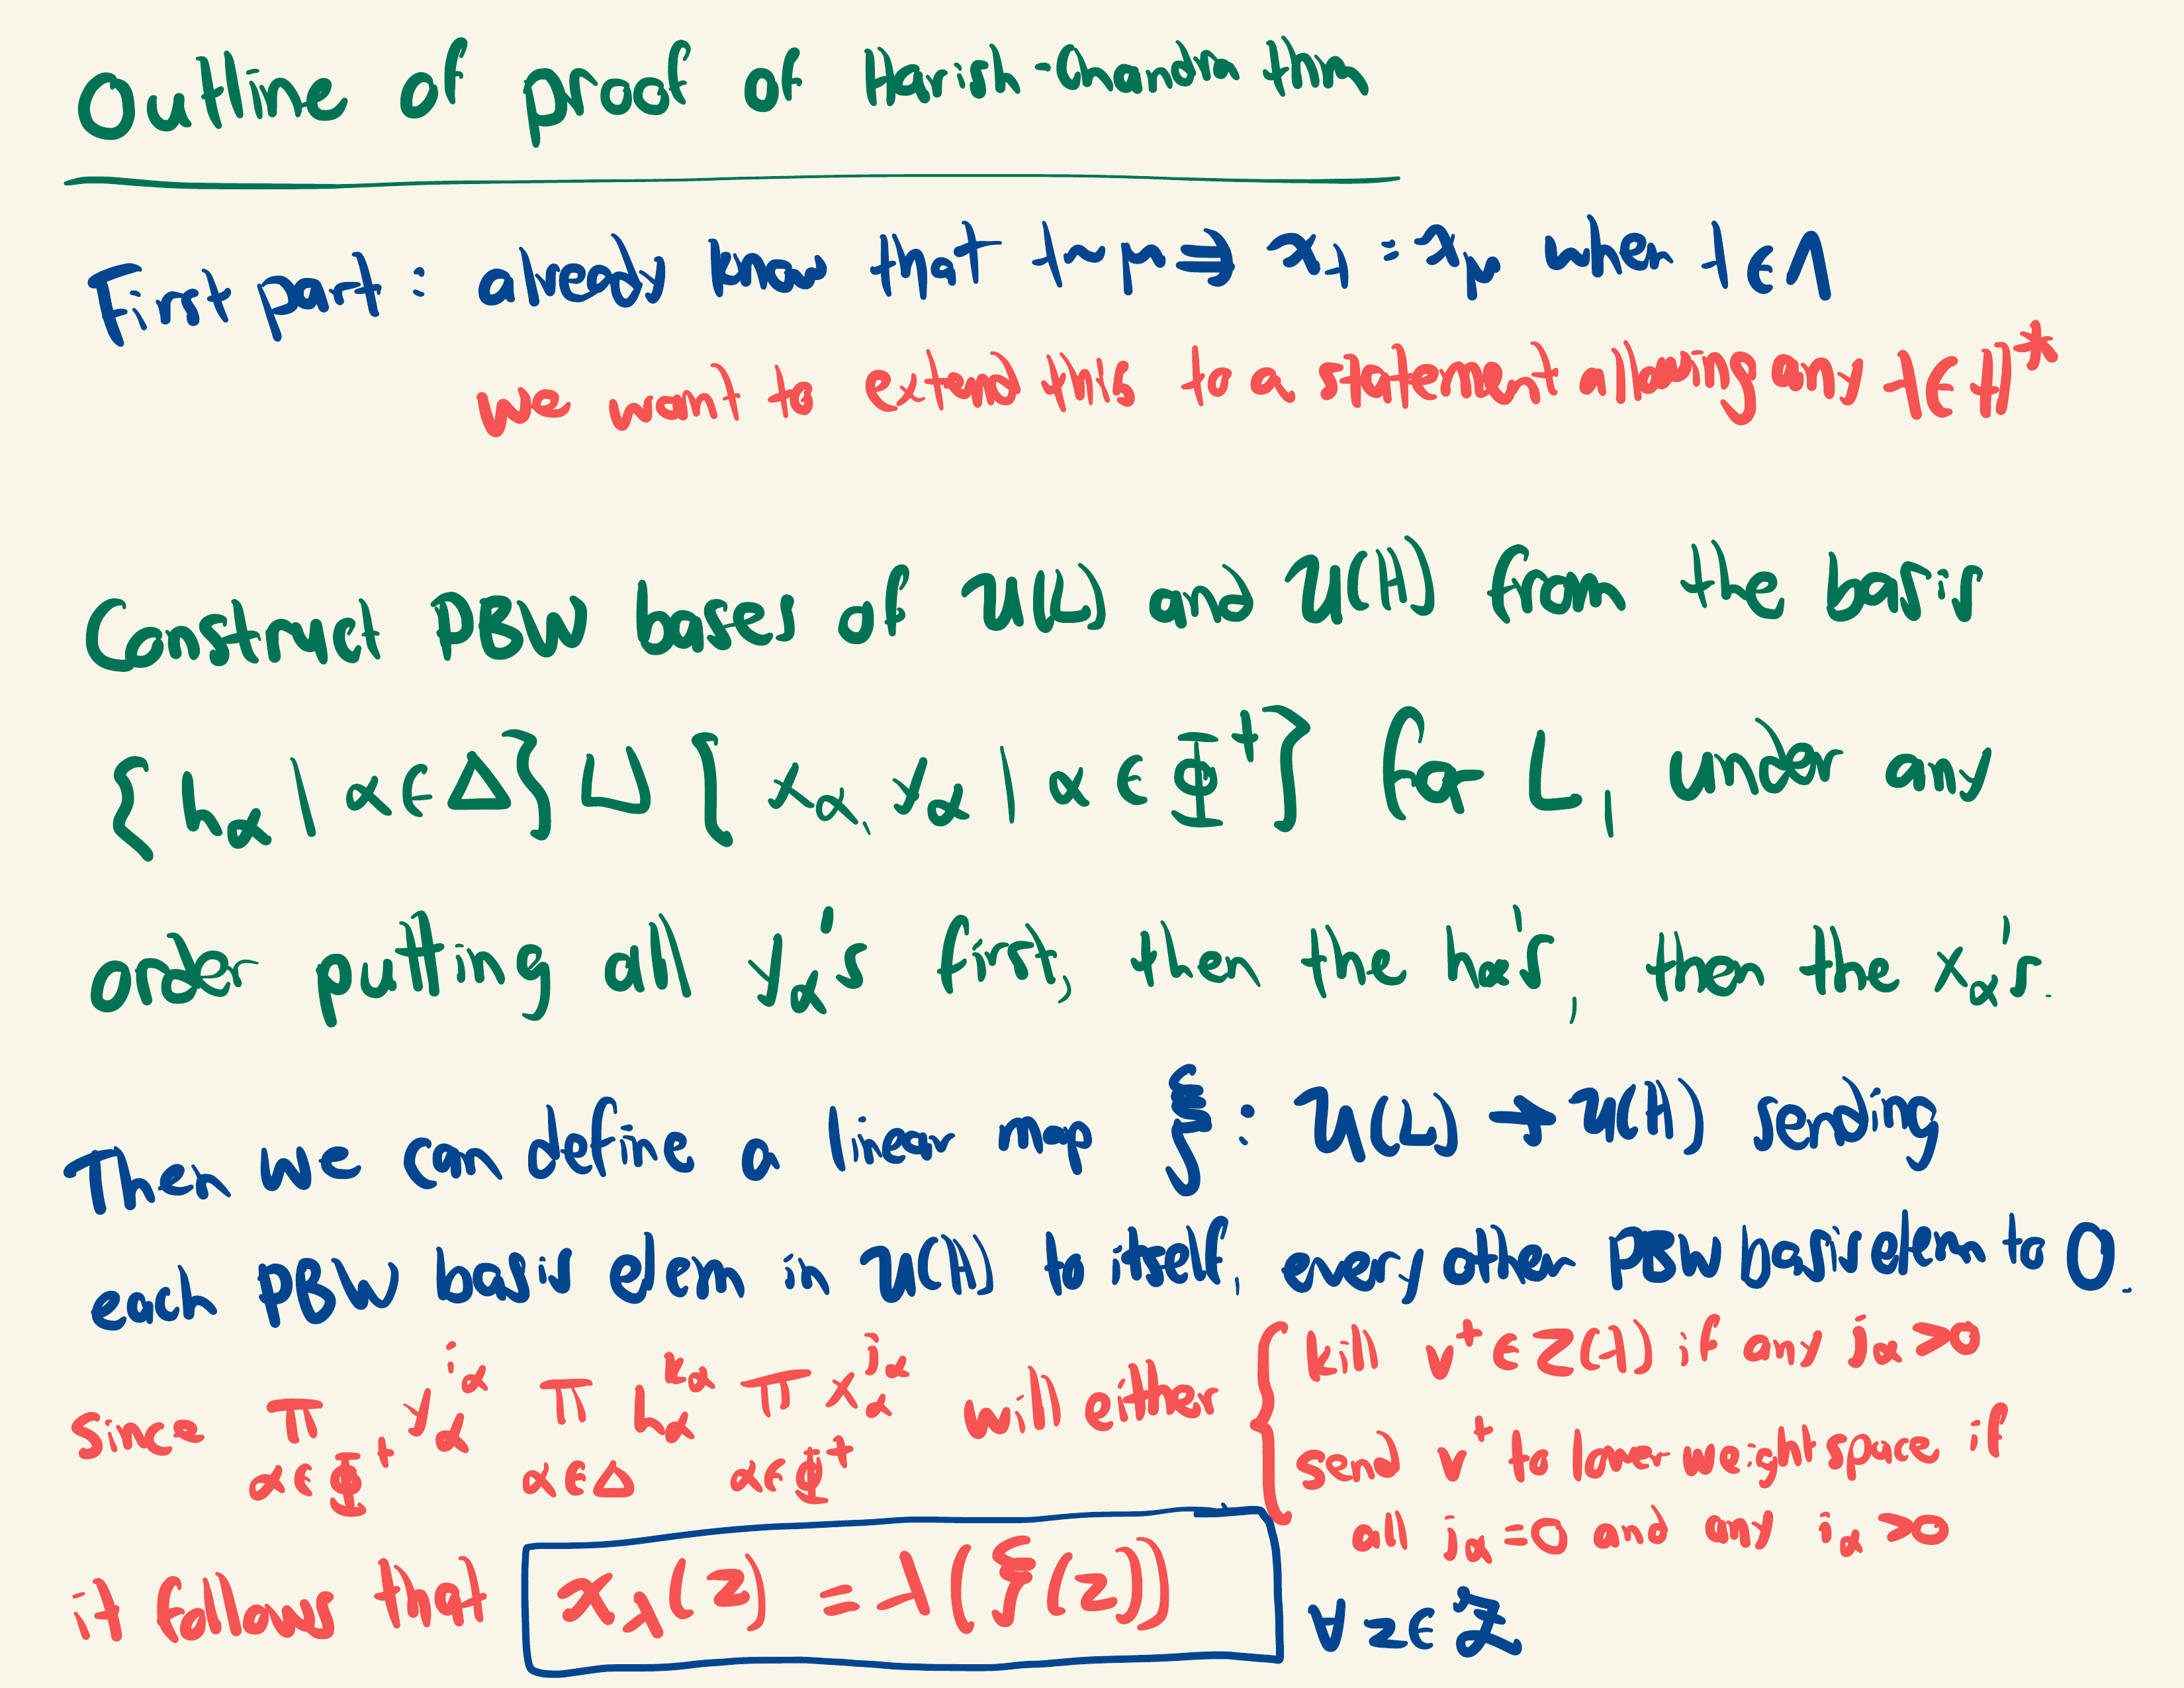 Outline of proof of Harish-Chandra thm
First part: already know that λ~μ ⇒ χ_λ = χ_μ when λ∈Λ
we want to extend this to a statement allowing any λ∈H*
Construct PBW bases of U(L) and U(H) from the basis
{h_α | α∈Δ} ⊔ {x_α, y_α | α∈Φ⁺} for L, under any
order putting all y_α's first, then the h_α's, then the x_α's.
Then we can define a linear map ξ: U(L) → U(H) sending
each PBW basis elem in U(H) to itself, every other PBW basis elem to 0.
Since ∏_{α∈Φ⁺} y_α^{i_α} ∏_{α∈Δ} h_α^{k_α} ∏_{α∈Φ⁺} x_α^{j_α} will either { kill v⁺∈Z(λ) if any j_α>0
send v⁺ to lower weight space if
all j_α=0 and any i_α>0
it follows that χ_λ(z) = λ(ξ(z)) ∀z∈Z